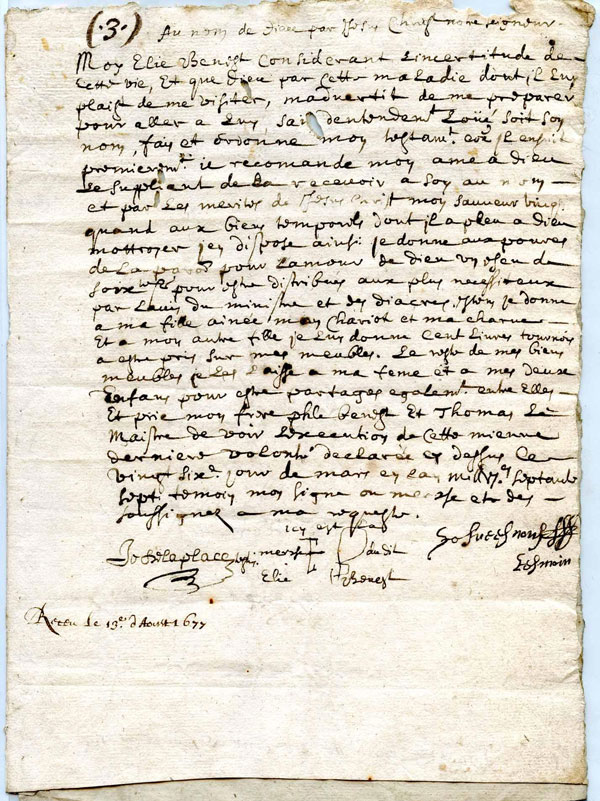 (.3.) Au nom de Dieu par Jesus Christ notre seigneur.
Moy Elie Benest Considerant Lincertitude de
cette vie, Et que dieu par cette maladie dont il luy
plaist de me visiter, m advertit de me preparer
pour aller a luy sans dentendemt. Loué soit son
nom, fais et ordonne mon testamt. come Il ensuit
premieremt. je recomande mon ame a dieu
Le supliant de la recevoir a soy au nom
et par Les merites de Jesus Christ mon sauveur
quand aux biens temporels dont il a pleu a dieu
mottroyer jen dispose ainsi je donne aux povres
de La paroisse pour Lamour de dieu
pour estre distribués aux plus necessiteux
par Lavis du ministre et des diacres, je donne
a ma fille ainée mon Chariot et ma charue
Et a mon autre fille je luy donne Cent Livres tournois
a estre pris sur mes meubles. Le reste de mes biens
meubles je Les Laisse a ma feme et a mes deux
Enfans pour estre partages egalemt. entre Elles
Et prie mon frere Phle Benest Et Thomas Le
Maistre de voir Lexecution de Cette mienne
derniere volonte declarée cy dessus Ce
vingt sixe. jour de mars en Lan mil VIc septante
sept temoin mon signe ou merche et des
soussignez a ma requeste.
icy est
Jo: Delaplace merche dudit
Elie Benest
temoin
Receu le 13e. d'Aoust 1677